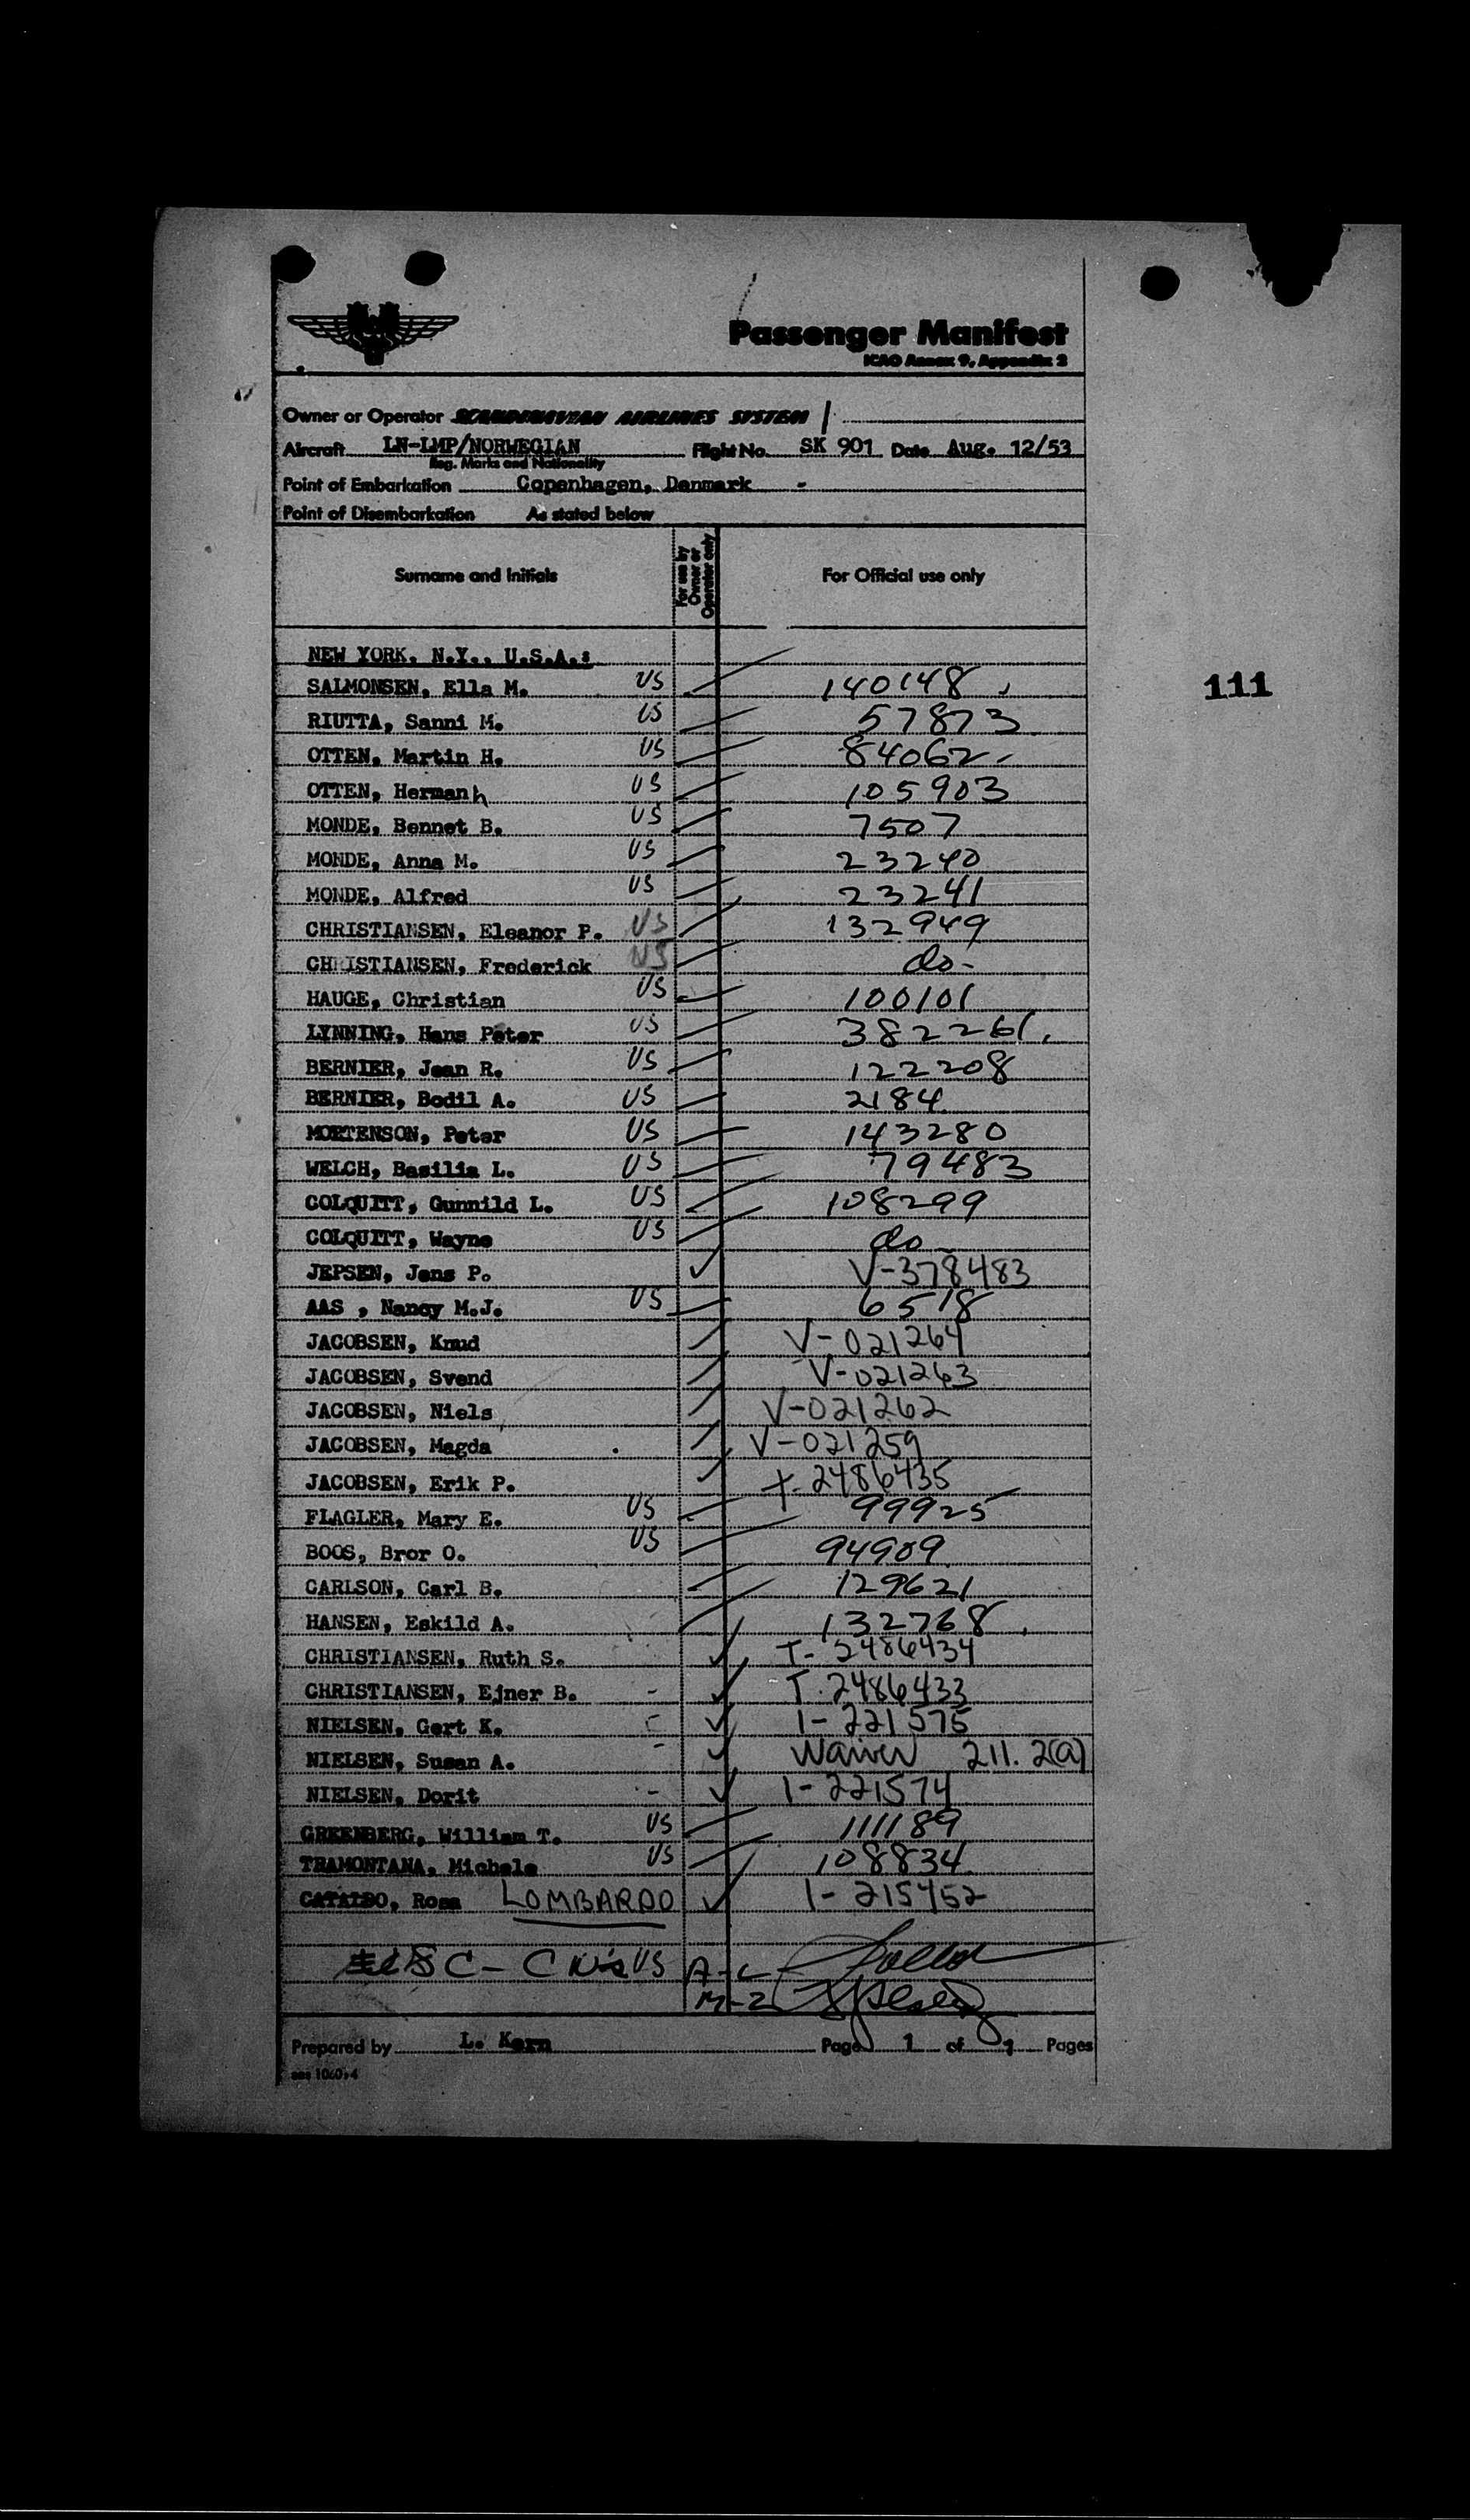 Passenger Manifest
ICAO Annex 9, Appendix 2
Owner or Operator SCANDINAVIAN AIRLINES SYSTEM
Aircraft LN-LMP/NORWEGIAN Flight No. SK 901 Date Aug. 12/53
Reg. Marks and Nationality
Point of Embarkation Copenhagen, Denmark -
Point of Disembarkation As stated below
Surname and Initials For use by Owner or Operator only For Official use only
NEW YORK, N.Y., U.S.A.:
111
SALMONSEN, Ella M. US 140148
RIUTTA, Sanni M. US 57873
OTTEN, Martin H. US 84062
OTTEN, Hermanh US 105903
MONDE, Bennet B. US 7507
MONDE, Anna M. US 23240
MONDE, Alfred US 23241
CHRISTIANSEN, Eleanor P. US 132949
CHRISTIANSEN, Frederick US do-
HAUGE, Christian US 100101
LYNNING, Hans Peter US 382261
BERNIER, Jean R. US 122208
BERNIER, Bodil A. US 2184
MORTENSON, Peter US 143280
WELCH, Basilia L. US 79483
COLQUITT, Gunnild L. US 108299
COLQUITT, Wayne US do
JEPSEN, Jens P. V-378483
AAS , Nancy M.J. US 6518
JACOBSEN, Knud V-021264
JACOBSEN, Svend V-021263
JACOBSEN, Niels V-021262
JACOBSEN, Magda V-021259
JACOBSEN, Erik P. T-2486435
FLAGLER, Mary E. US 99925
BOOS, Bror O. US 94909
CARLSON, Carl B. 129621
HANSEN, Eskild A. 132768
CHRISTIANSEN, Ruth S. T-2486434
CHRISTIANSEN, Ejner B. - T-2486433
NIELSEN, Gert K. - I-221575
NIELSEN, Susan A. - Waiver 211.2(a)
NIELSEN, Dorit - I-221574
GREENBERG, William T. US 111189
TRAMONTANA, Michele US 108834
CATALDO, Rosa LOMBARDO I-215452
US A-L
M-Z
Prepared by L. Kern Page 1 of 1 Pages